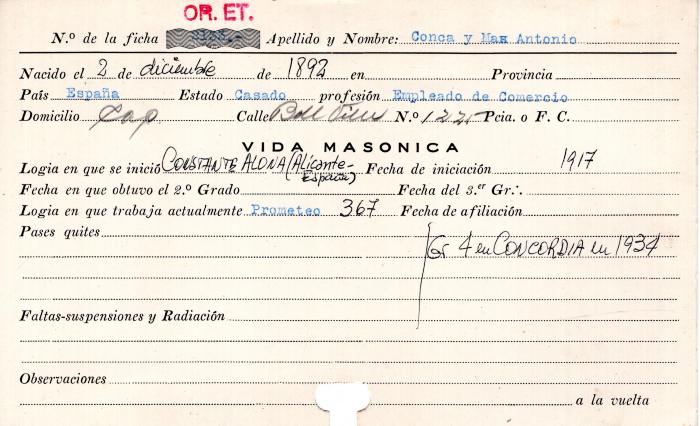 OR. ET.
N.º de la ficha Apellido y Nombre: Conca y Max Antonio
Nacido el 2 de diciembre de 1892 en Provincia
País España Estado Casado profesión Empleado de Comercio
Domicilio Cap Calle N.º 1225 Pcia. o F. C.
VIDA MASONICA
Logia en que se inició CONSTANTE ALONA (Alicante- España) Fecha de iniciación 1917
Fecha en que obtuvo el 2.º Grado Fecha del 3.er Gr∴
Logia en que trabaja actualmente Prometeo 367 Fecha de afiliación
Pases quites
Gr 4 en CONCORDIA en 1934
Faltas-suspensiones y Radiación
Observaciones
a la vuelta